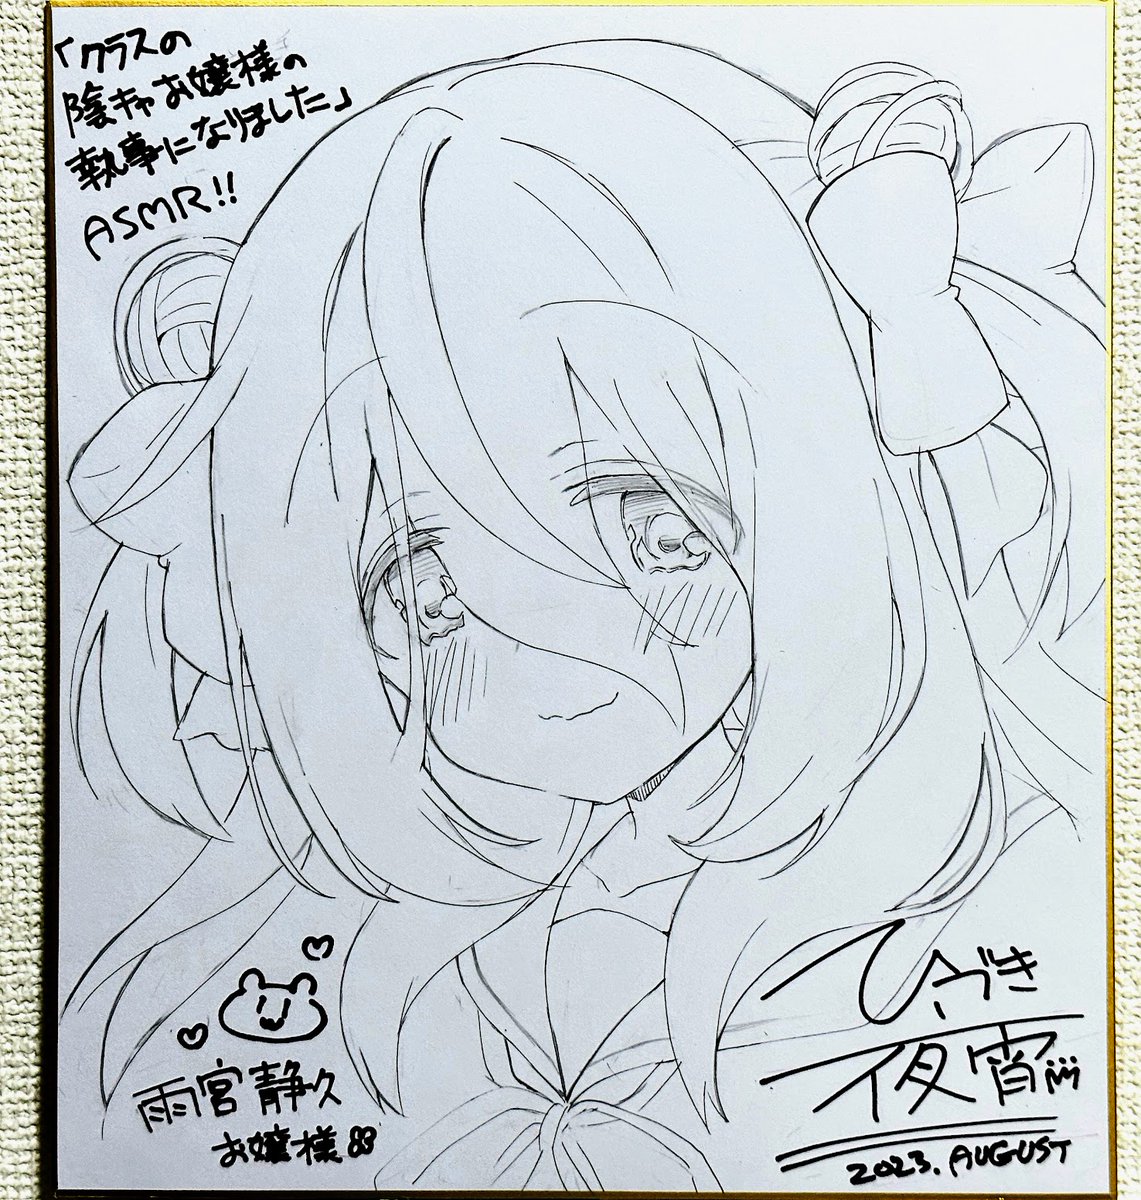 「クラスの
陰キャお嬢様の
執事になりました」
ASMR!!
雨宮静久
お嬢様
ひづき
夜宵
2023. AUGUST